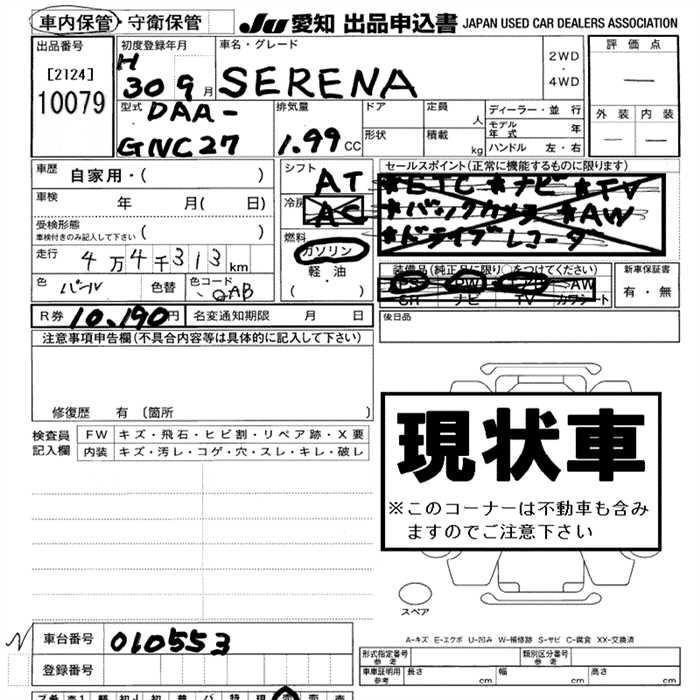 車内保管・守衛保管
JU 愛知 出品申込書 JAPAN USED CAR DEALERS ASSOCIATION
出品番号
[2124]
10079
初度登録年月
H
30 9月
車名・グレード
SERENA
2WD
・
4WD
評価点
—
外装 内装
— —
型式
DAA-
GNC27
排気量
1.99 CC
ドア
形状
定員
人
積載
kg
ディーラー・並行
モデル年式 年
ハンドル 左・右
車歴
自家用・( )
車検
年 月( 日)
受検形態
車検付きのみ記入して下さい ( )
走行
4万4千313km
色 パール 色替
色コード QAB
シフト
AT
冷房
AC
燃料
ガソリン
軽・油
( ・ )
セールスポイント(正常に機能するものに限ります)
*ETC *ナビ *TV
*バックカメラ *AW
*ドライブレコーダ
装備品(純正品に限り○をつけてください)
PS PW エアB AW
SR ナビ TV カワシート
新車保証書
有・無
R券 10,190円
名変通知期限 月 日
後日品
注意事項申告欄(不具合内容等は具体的に記入して下さい)
修復歴 有 〔箇所 〕
検査員
記入欄
FW キズ・飛石・ヒビ割・リペア跡・X要
内装 キズ・汚レ・コゲ・穴・スレ・キレ・破レ
現状車
※このコーナーは不動車も含み
ますのでご注意下さい
スペア
A-キズ E-エクボ U-凹み W-補修跡 S-サビ C-腐食 XX-交換済
N
車台番号 010553
登録番号
形式指定番号
参考
類別区分番号
参考
車庫証明用
参考
長さ cm
幅 cm
高さ cm